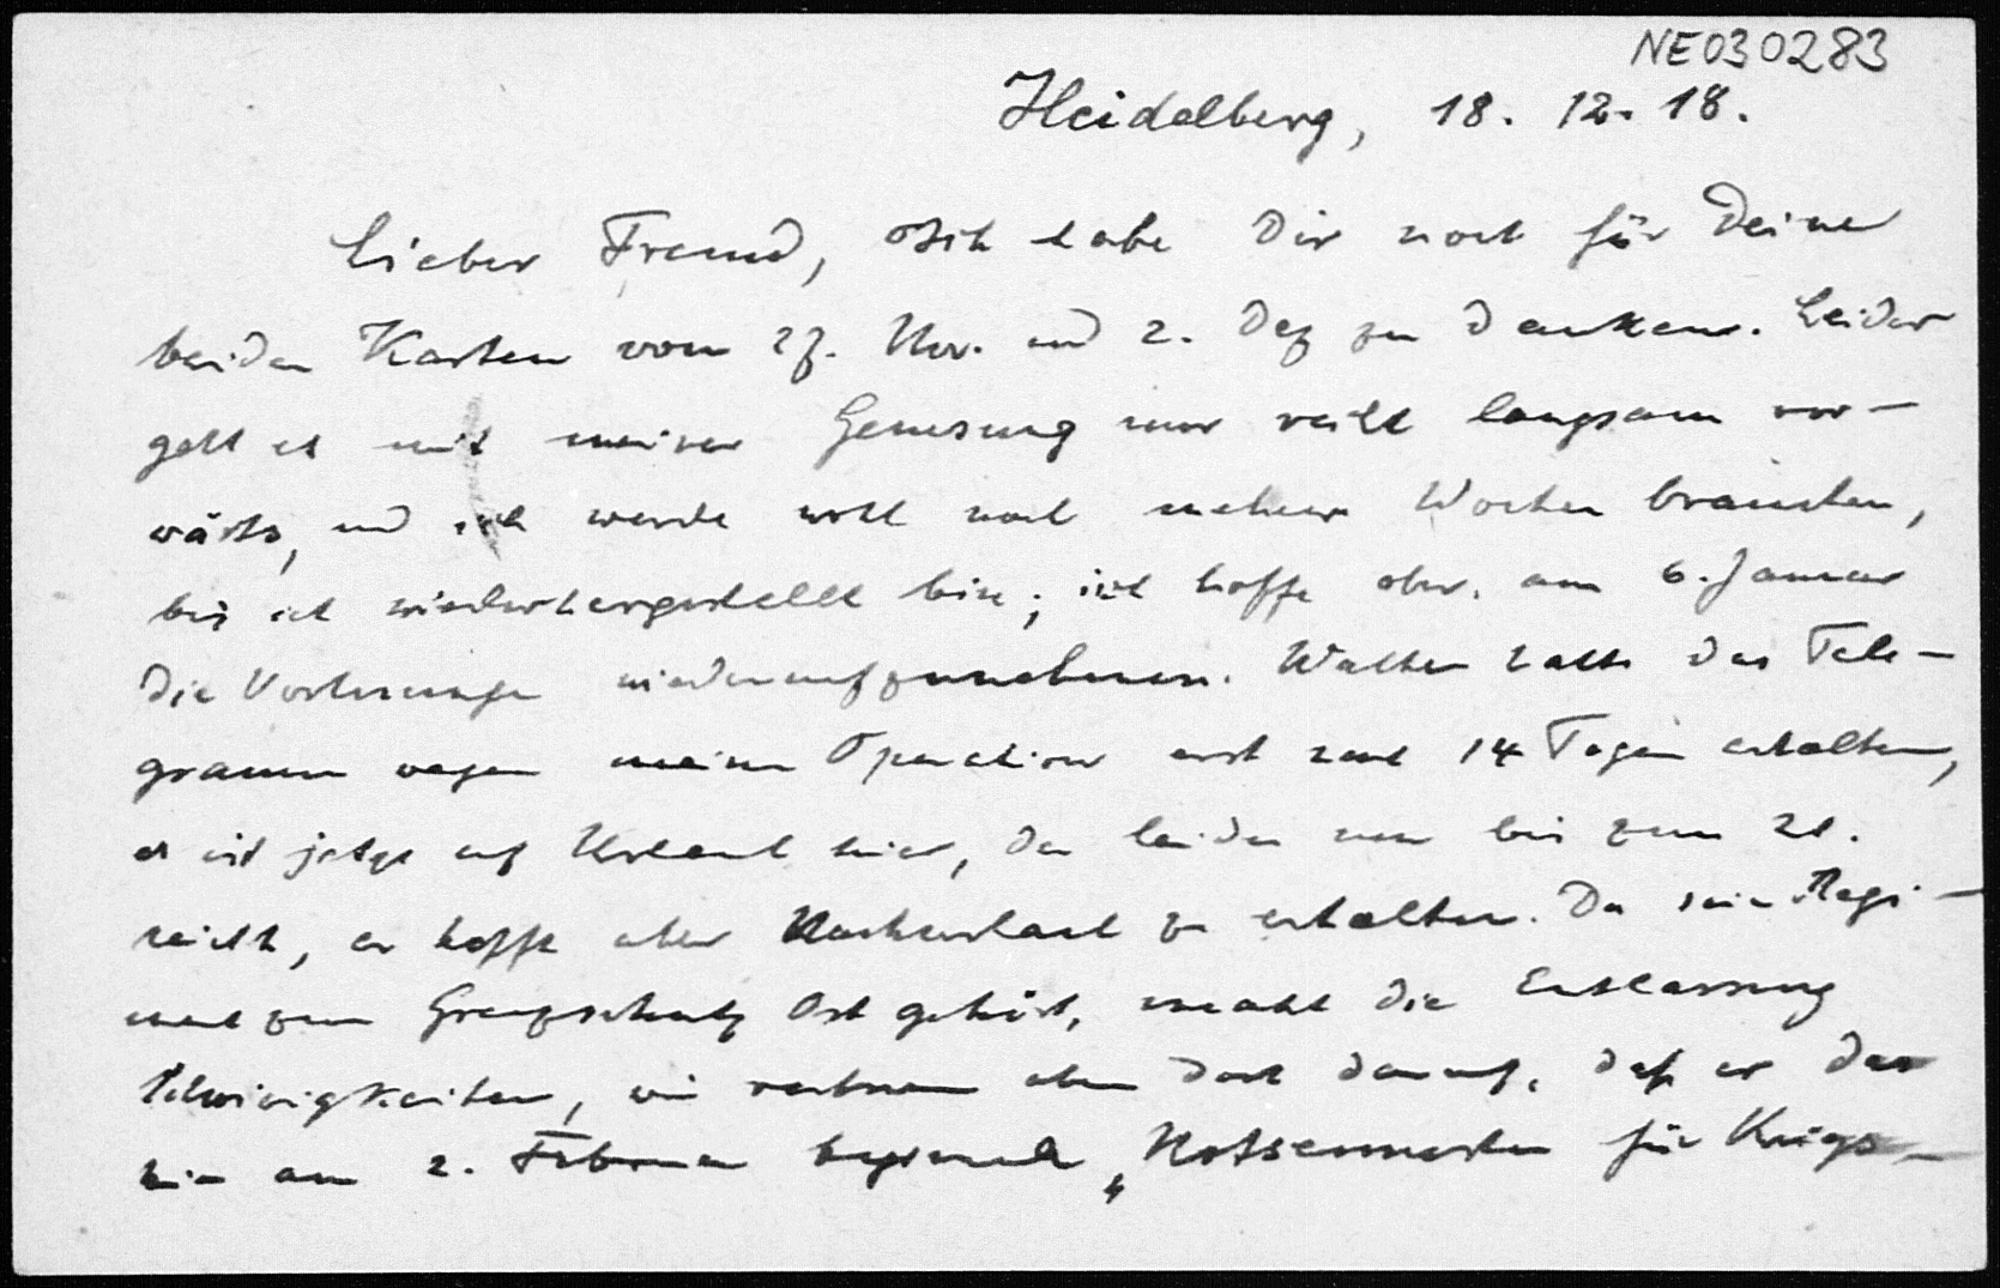 NE030283
Heidelberg, 18. 12. 18.
Lieber Freund, Ich habe Dir noch für Deine
beiden Karten vom 27. Nov. und 2. Dez zu danken. Leider
geht es mit meiner Genesung nur recht langsam vor-
wärts, und ich werde wohl noch mehrere Wochen brauchen,
bis ich wiederhergestellt bin; ich hoffe aber, am 6. Januar
die Vorlesungen wiederaufzunehmen. Walther hatte das Tele-
gramm wegen meiner Operation erst nach 14 Tagen erhalten,
er ist jetzt auf Urlaub hier, der leider nur bis zum 21.
reicht, er hofft aber Nachurlaub zu erhalten. Da sein Regi-
ment zum Grenzschutz Ost gehört, macht die Entlassung
Schwierigkeiten, wir rechnen aber doch darauf, daß er das
hier am 2. Februar beginnende „Notsemester für Kriegs-